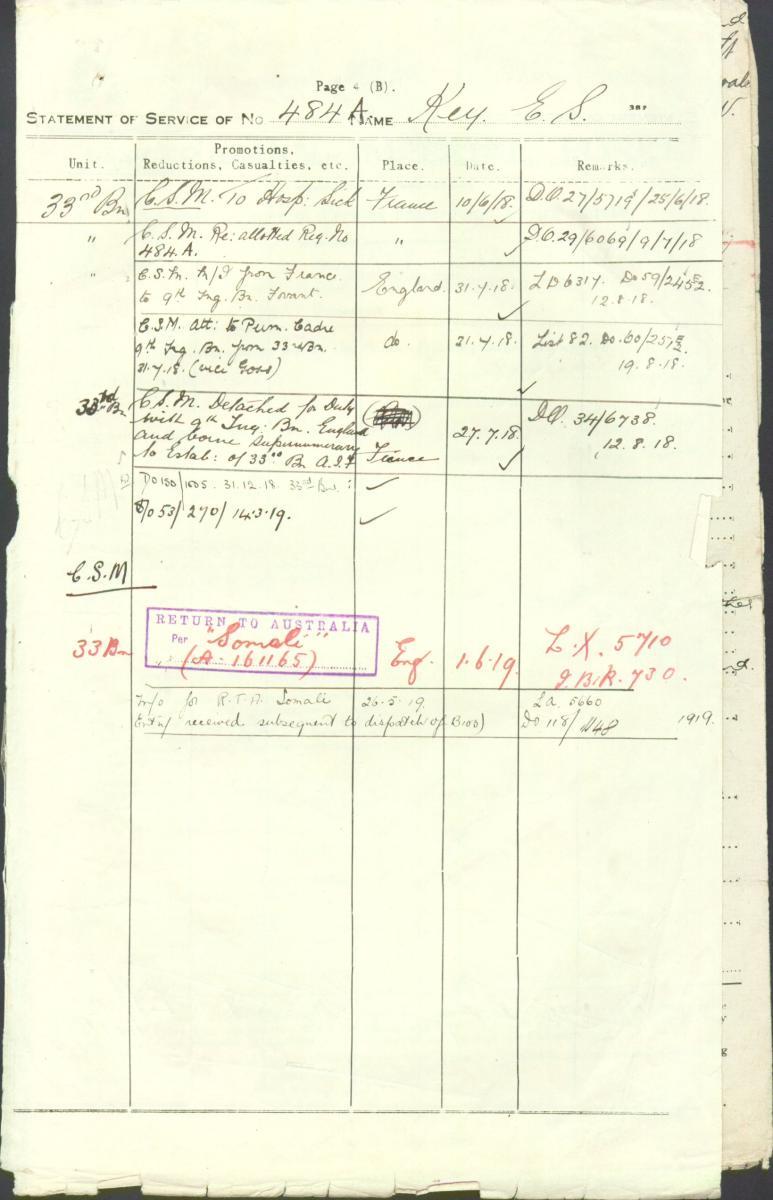 Page 4 (B).
STATEMENT OF SERVICE OF No 484A NAME Key. E. S.
Unit. Promotions, Reductions, Casualties, etc. Place. Date. Remarks.
33rd Bn C.S.M. To Hosp: Sick France 10/6/18. D.O. 27/5719/25/6/18.
" C.S.M. Re: allotted Reg. No " D.O. 29/6069/9/7/18
484.A.
" C.S.M. M/I from France England. 31.7.18. L D 6317. Do 59/2452.
to 9th Trng. Bn. Fovant. 12.8.18.
C.S.M. Att: to Perm. Cadre do. 31.7.18. List 82. Do. 60/257
9th Trg. Bn. from 33rd Bn. 19.8.18.
31.7.18. (vice Goss)
33rd Bn C.S.M. Detached for Duty
with 9th Trng: Bn. England 27.7.18. D.O. 34/6738.
and borne supernumerary 12.8.18.
to Estab: of 33rd Bn A.I.F France
Do 150/1505. 31.12.18. 33rd Bn.
Do 53/270/14.3.19.
C.S.M
RETURN TO AUSTRALIA
33 Bn Per "Somali" Eng. 1.6.19. L.X. 5710
(A-161165) J.B.R. 730.
M/o for R.T.A. Somali 26.5.19. La 5660
Entry received subsequent to dispatch of B103) Do 118/ 1919.